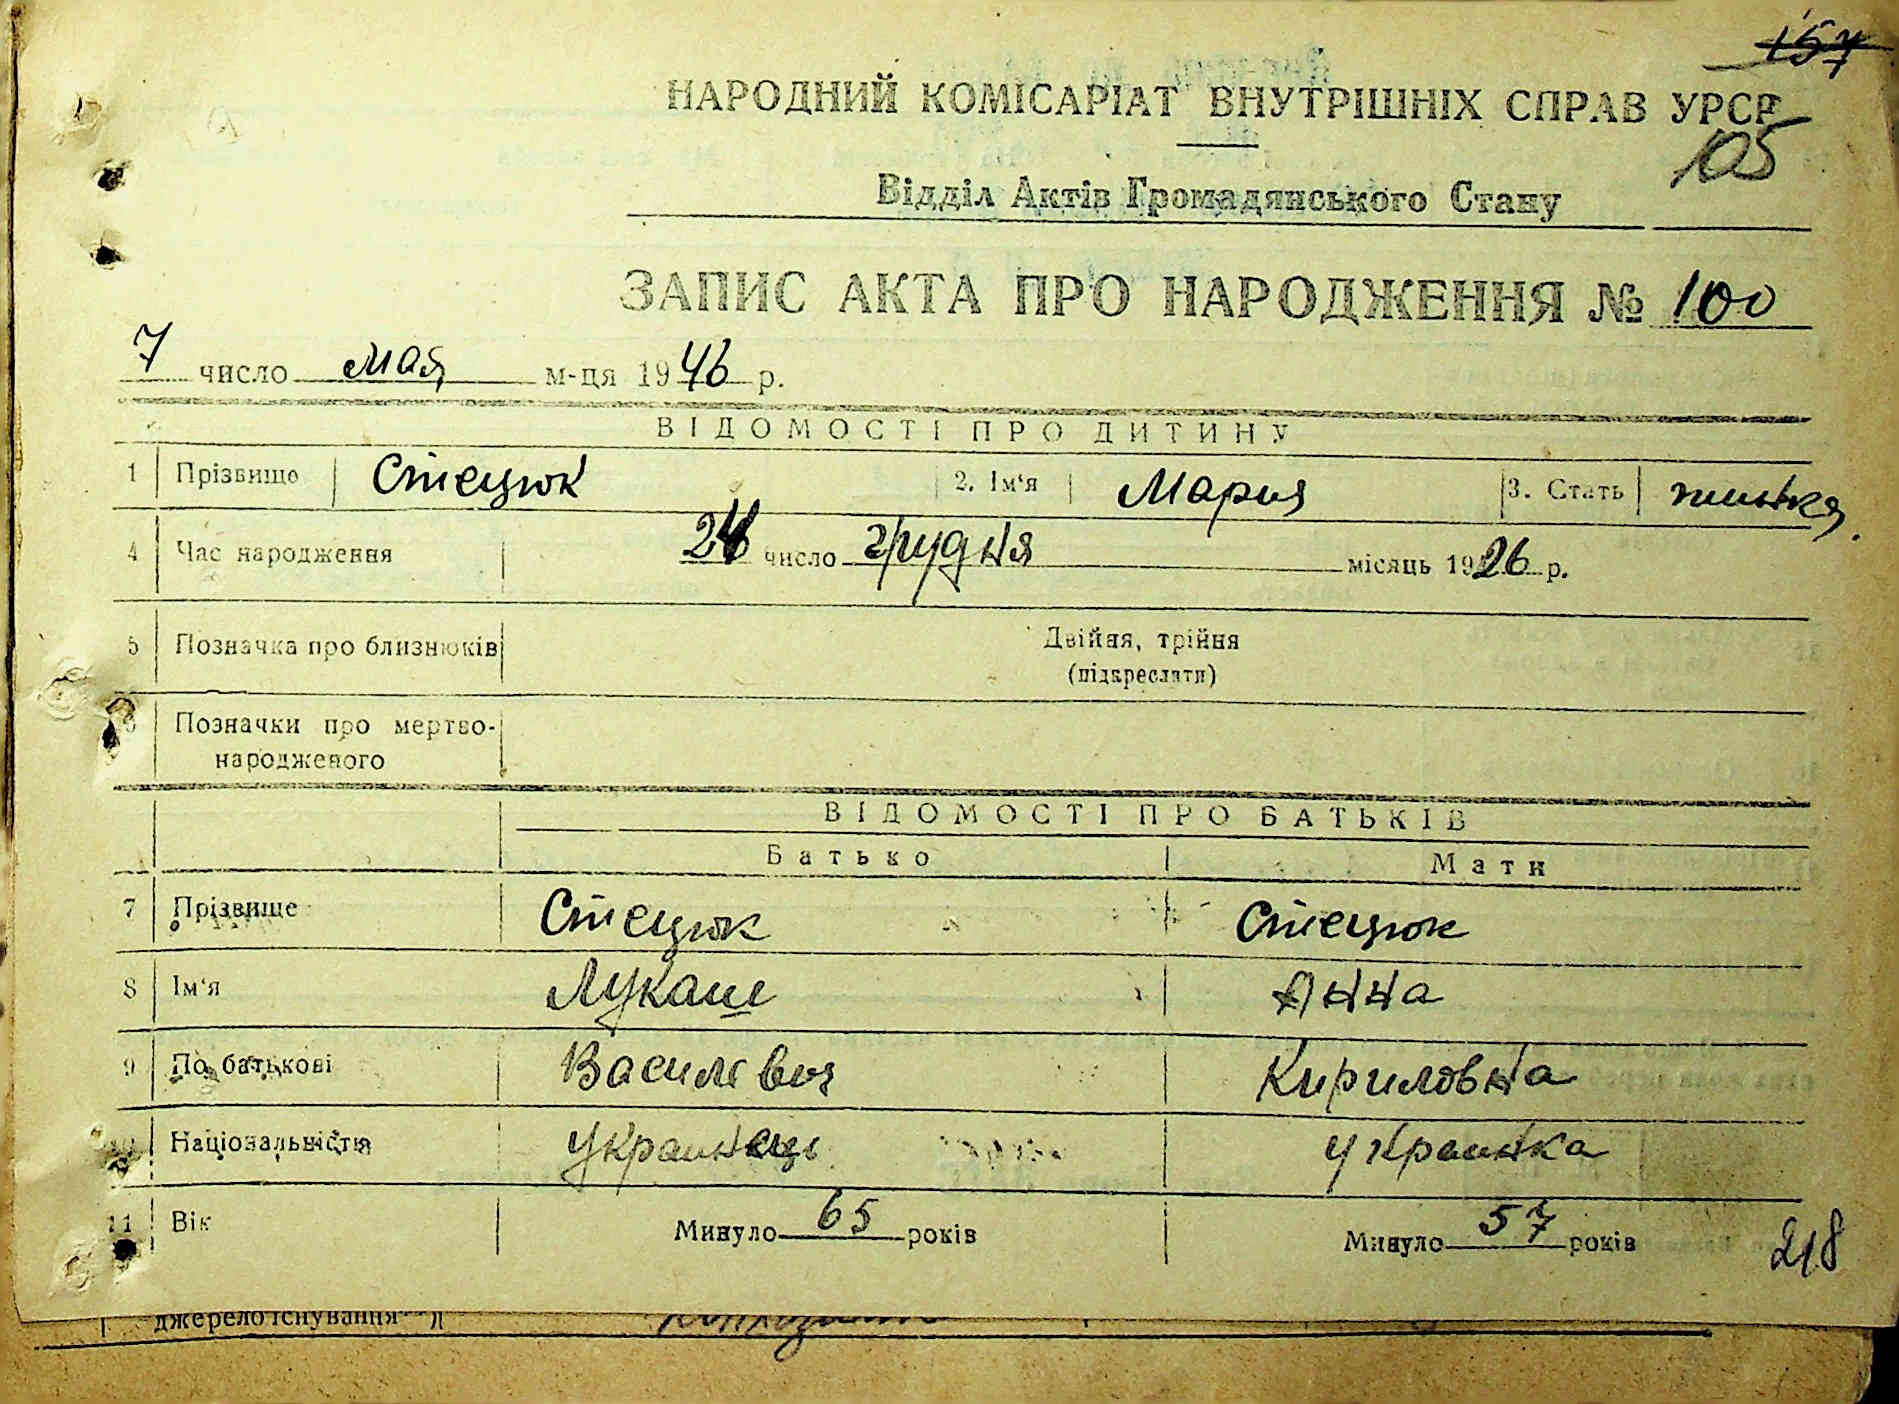 157
НАРОДНИЙ КОМІСАРІАТ ВНУТРІШНІХ СПРАВ УРСР
105
Відділ Актів Громадянського Стану
ЗАПИС АКТА ПРО НАРОДЖЕННЯ № 100
7 число мая м-ця 1946 р.
ВІДОМОСТІ ПРО ДИТИНУ
1 Прізвище Стецюк 2. Ім'я Мария 3. Стать жинка
4 Час народження число грудня місяць 1926 р.
5 Позначка про близнюків Двійня, трійня
(підкреслити)
6 Позначки про мертво-
народженого
ВІДОМОСТІ ПРО БАТЬКІВ
Батько Мати
7 Прізвище Стецюк Стецюк
8 Ім'я Лукаш Анна
9 По батькові Василевич Кириловна
10 Національність Украинець Украинка
11 Вік Минуло 65 років Минуло 57 років
218
джерело існування